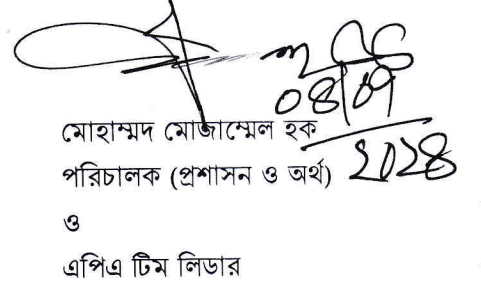 ০৪/০৭
২০২৪
মোহাম্মদ মোজাম্মেল হক
পরিচালক (প্রশাসন ও অর্থ)
ও
এপিএ টিম লিডার